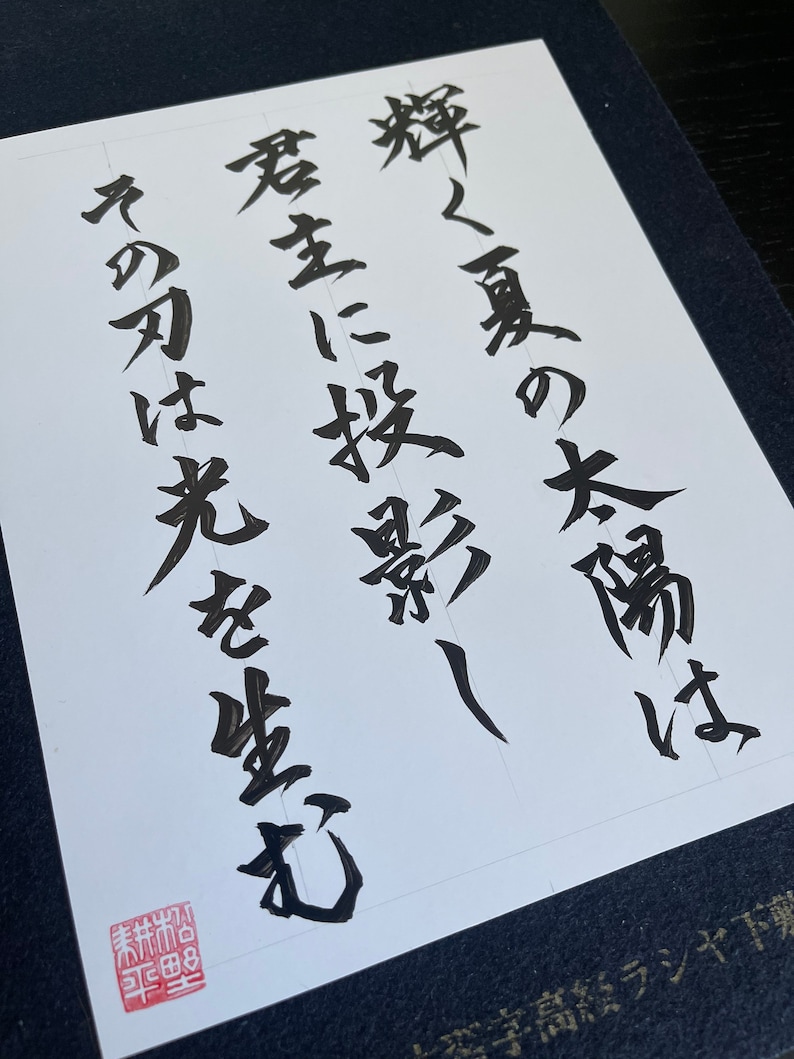 輝く夏の太陽は
君主に投影し
その刃は光を生む
松野
耕平
高級ラシャ下敷